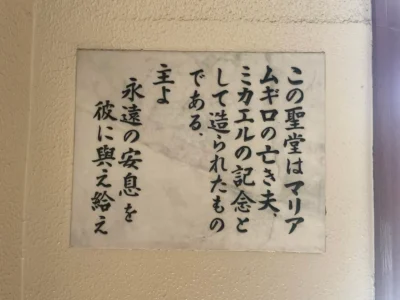 この聖堂はマリア
ムギロの亡き夫、
ミカエルの記念と
して造られたもの
である、
主よ
永遠の安息を
彼に與え給え